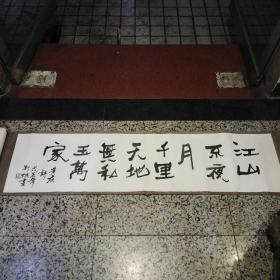 江山
不夜
月
千里
天地
無私
玉萬
家